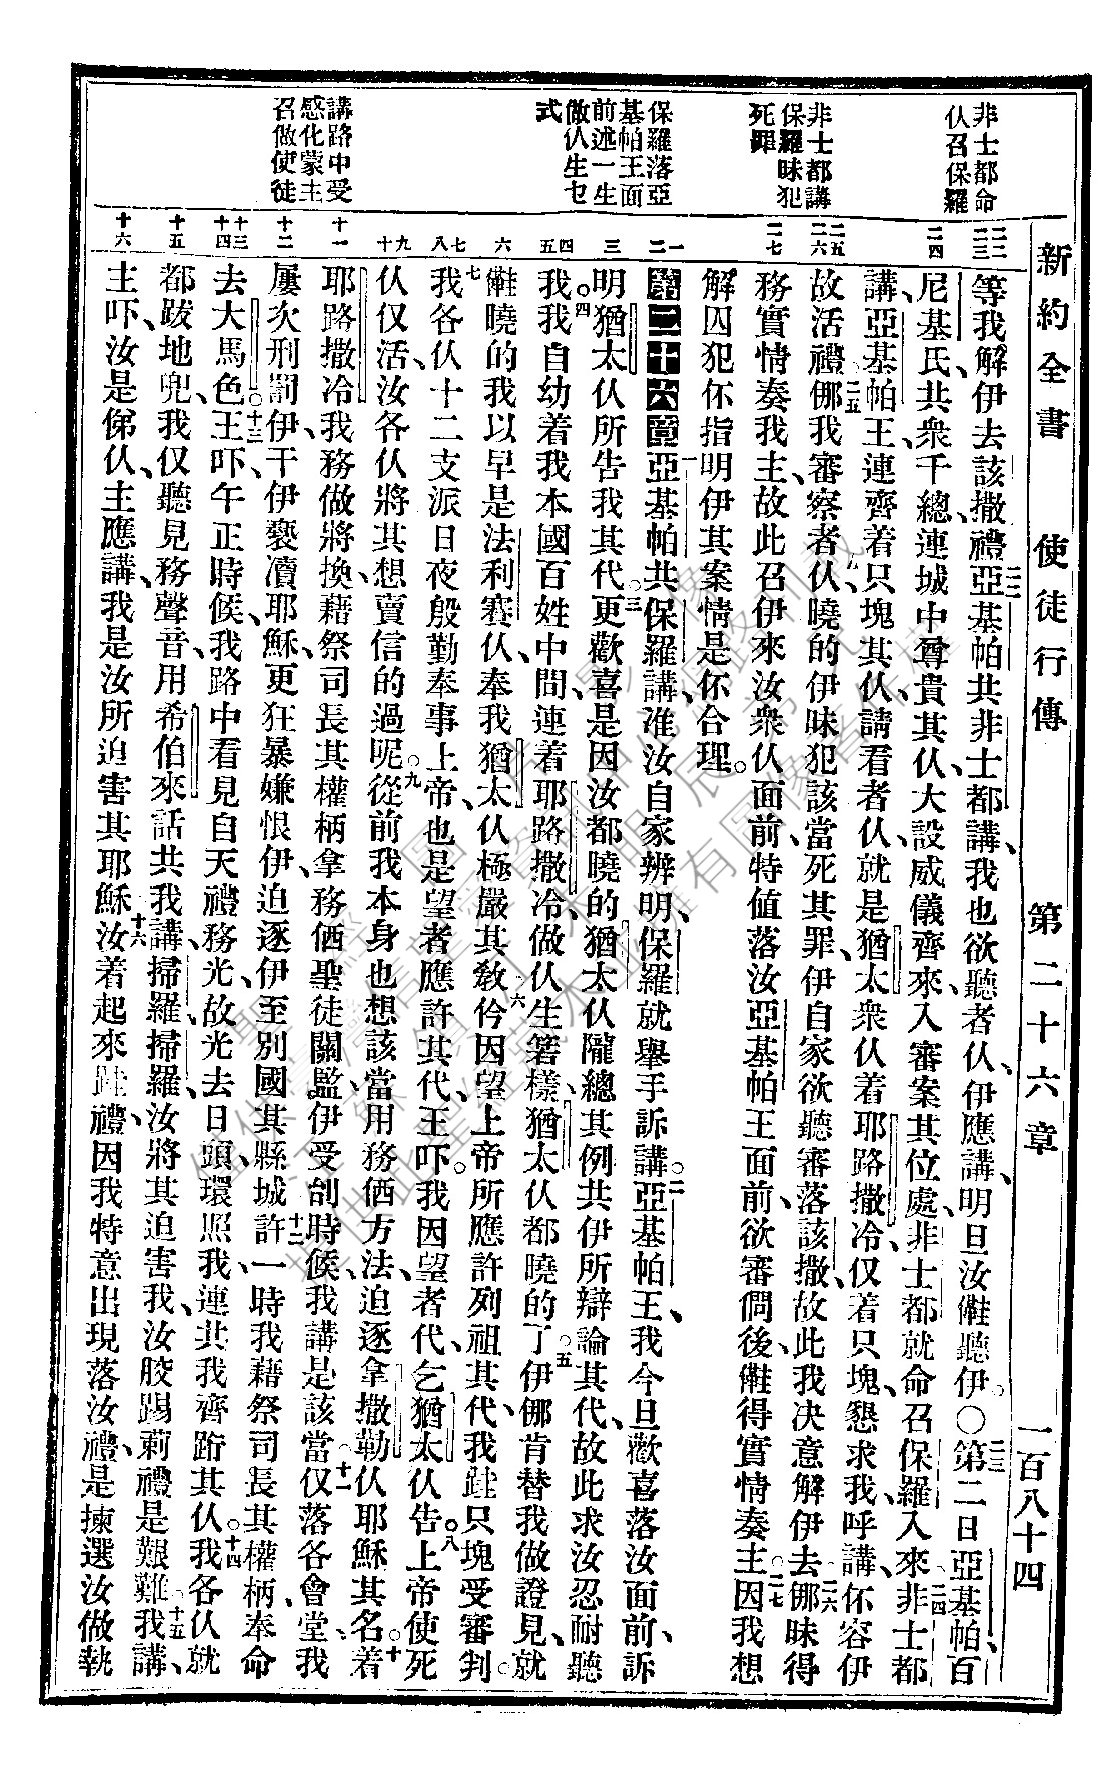 新約全書　使徒行傳　第二十六章　一百八十四
非士都命
仈召保羅
非士都講
保羅昧犯
死罪
保羅落亞
基帕王面
前述一生
做仈生乜
式
講路中受
感化蒙主
召做使徒
二二
二三
二四
二五
二六
二七
一
二
三
四
五
六
七
八
九
十
十一
十二
十三
十四
十五
十六
等我解伊去該撒禮、二二亞基帕共非士都講、我也欲聽者仈、伊應講、明旦汝聽伊。〇二三第二日亞基帕百
尼基氏共衆千總連城中尊貴其仈、大設威儀齊來、入審案其位處、非士都就命召保羅入來、二四非士都
講、亞基帕王、連齊着只塊其仈、請看者仈、就是猶太衆仈着耶路撒冷、仅着只塊、懇求我呼講、伓容伊
故活禮、二五倻我審察者仈、曉的伊昧犯該當死其罪、伊自家欲聽審落該撒、故此我决意解伊去、二六倻昧得
務實情奏我主、故此召伊來汝衆仈面前、特值落汝亞基帕王面前、欲審倜後、得實情奏主、二七因我想
解囚犯伓指明伊其案情是伓合理。
第二十六章一亞基帕共保羅講、准汝自家辨明、保羅就舉手訴講。二亞基帕王、我今旦歡喜落汝面前、訴
明猶太仈所告我其代。三更歡喜是因汝都曉的猶太仈隴總其例共伊所辯論其代、故此求汝忍耐聽
我。四我自幼着我本國百姓中間、連着耶路撒冷、做仈生箸樣、猶太仈都曉的了、五伊倻肯替我做證見、就
曉的我以早是法利賽仈、奉我猶太仈極嚴其教、六伱因望上帝所應許列祖其代、我跍只塊受審判。
七我各仈十二支派日夜殷勤奉事上帝、也是望者應許其代、王吓、我因望者代、乞猶太仈告。八上帝使死
仈仅活、汝各仈將其想賣信的過呢。九從前我本身也想該當用務価方法、迫逐拿撒勒仈耶穌其名。十着
耶路撒冷、我務做將換、藉祭司長其權柄、拿務価聖徒關監、伊受刣時候、我講是該當、十一仅落各會堂、我
屢次刑罰伊、干伊褻瀆耶穌、更狂暴嫌恨伊、迫逐伊至別國其縣城、十二許一時我藉祭司長其權柄奉命
去大馬色。十三王吓、午正時候、我路中看見自天禮務光、故光去日頭、環照我、連共我齊䟕其仈。十四我各仈就
都跋地兜、我仅聽見務聲音、用希伯來話共我講、掃羅掃羅、汝將其迫害我、汝骹踢莿禮是艱難、十五我講、
主吓、汝是倷仈、主應講、我是汝所迫害其耶穌、十六汝着起來跍禮、因我特意出現落汝禮、是揀選汝做執